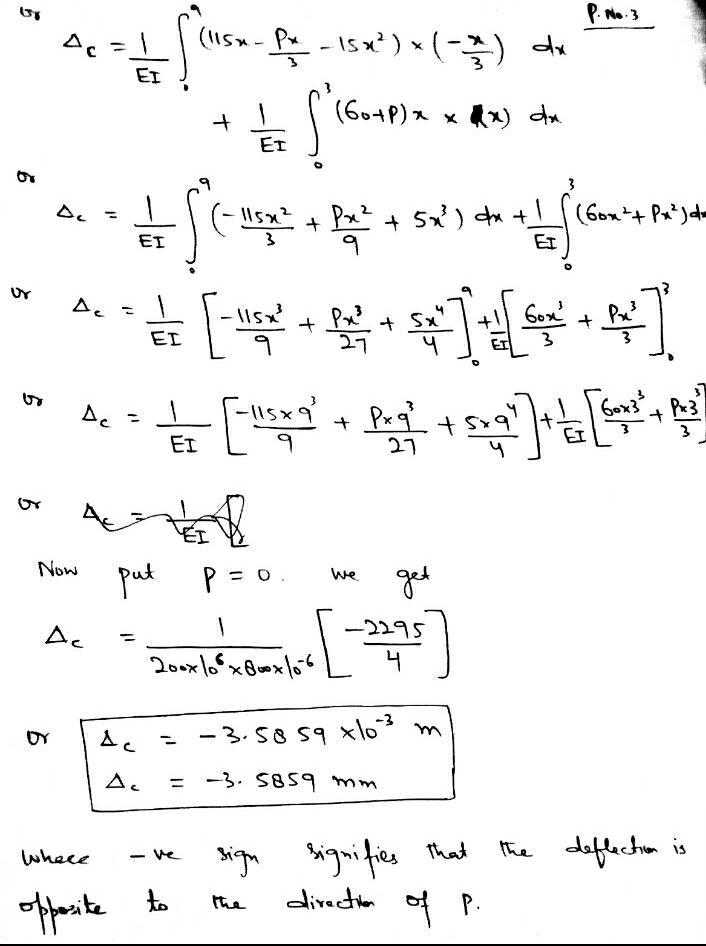 P. No. 3
or Δc = 1/EI ∫₀⁹ (115x - Px/3 - 15x²) × (-x/3) dx
+ 1/EI ∫₀³ (60+P)x × (x) dx
or Δc = 1/EI ∫₀⁹ (-115x²/3 + Px²/9 + 5x³) dx + 1/EI ∫₀³ (60x² + Px²) dx
or Δc = 1/EI [-115x³/9 + Px³/27 + 5x⁴/4]₀⁹ + 1/EI [60x³/3 + Px³/3]₀³
or Δc = 1/EI [-115×9³/9 + P×9³/27 + 5×9⁴/4] + 1/EI [60×3³/3 + P×3³/3]
or Δc = 1/EI [
Now put P = 0. we get
Δc = 1/200×10⁶×800×10⁻⁶ [-2295/4]
or Δc = -3.5859 ×10⁻³ m
Δc = -3.5859 mm
where -ve sign signifies that the deflection is
opposite to the direction of P.